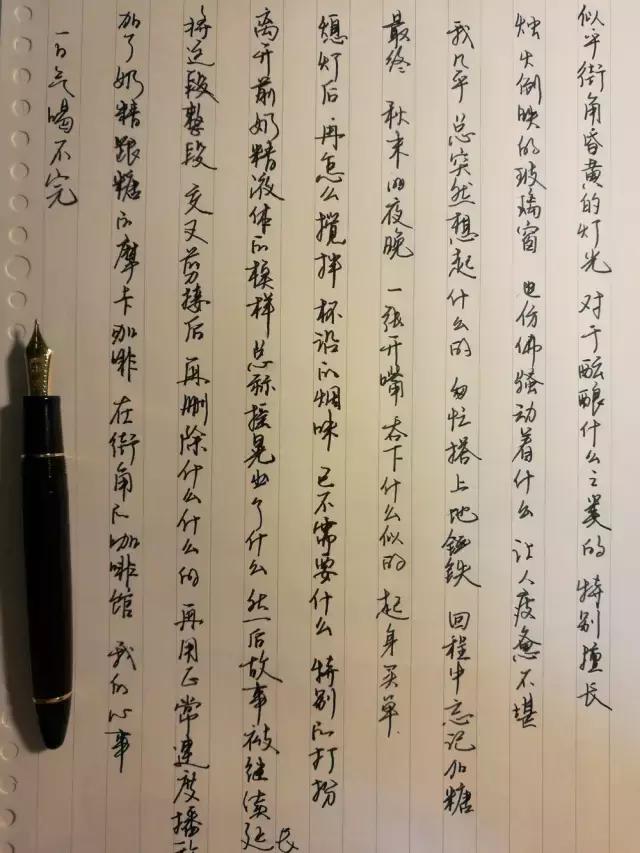 似乎街角昏黄的灯光 对于酝酿什么之类的 特别擅长
烛火倒映的玻璃窗 也仿佛骚动着什么 让人疲惫不堪
我几乎总突然想起什么的 匆忙搭上地铁 回程中忘记加糖
最终 秋末的夜晚 一张开嘴 吞下什么似的 起身买单
熄灯后 再怎么搅拌 杯沿的烟味 已不需要什么 特别的打扮
离开前奶精液体的模样 总称摇晃出了什么 然后故事被继续延长
将这段整段 交叉剪接后 再删除什么什么的 再用正常速度播放
加了奶精跟糖的摩卡咖啡 在街角的咖啡馆 我的心事
一口气喝不完